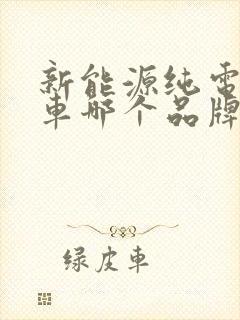 新能源纯電
車哪个品牌
绿皮車